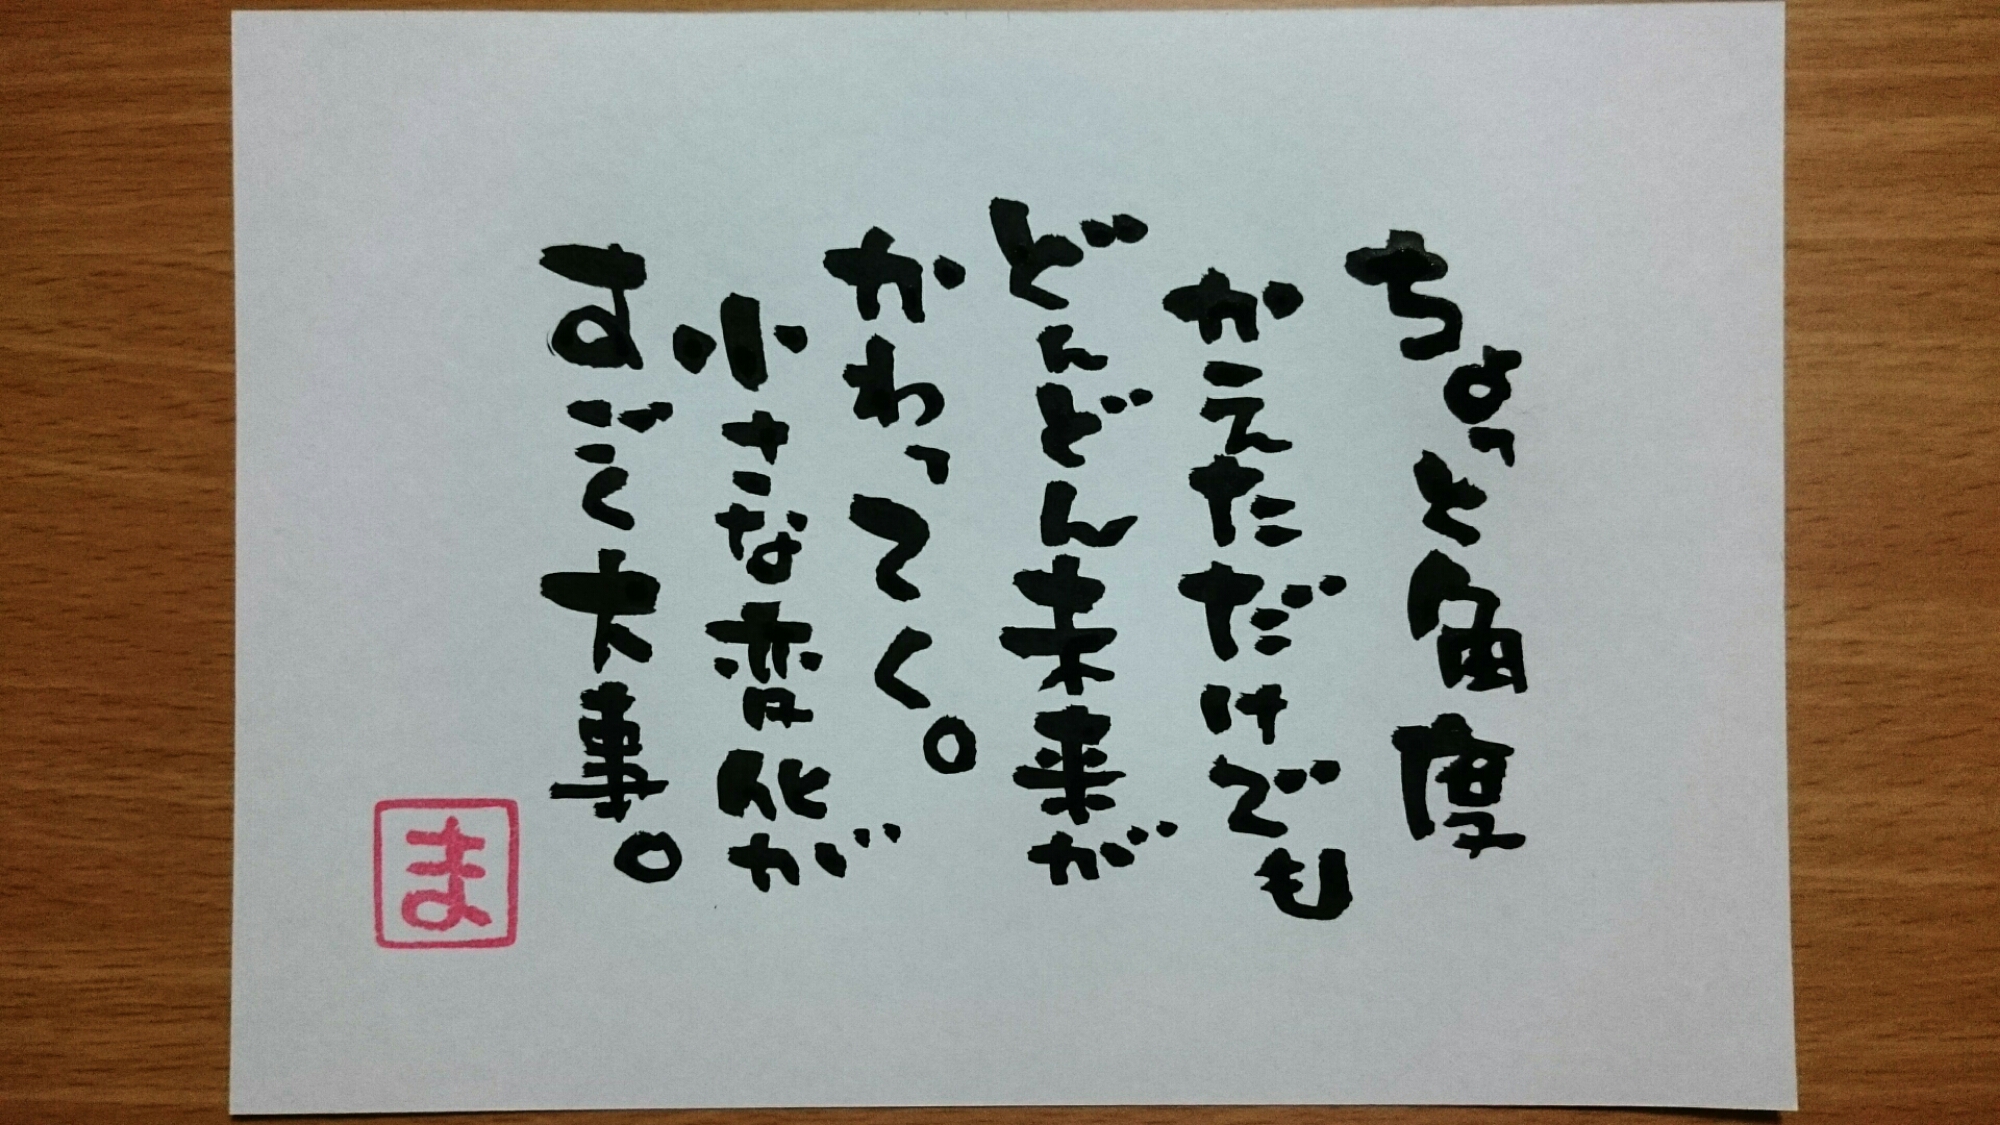 ちょっと角度
かえただけでも
どんどん未来が
かわってく。
小さな変化が
すごく大事。
ま